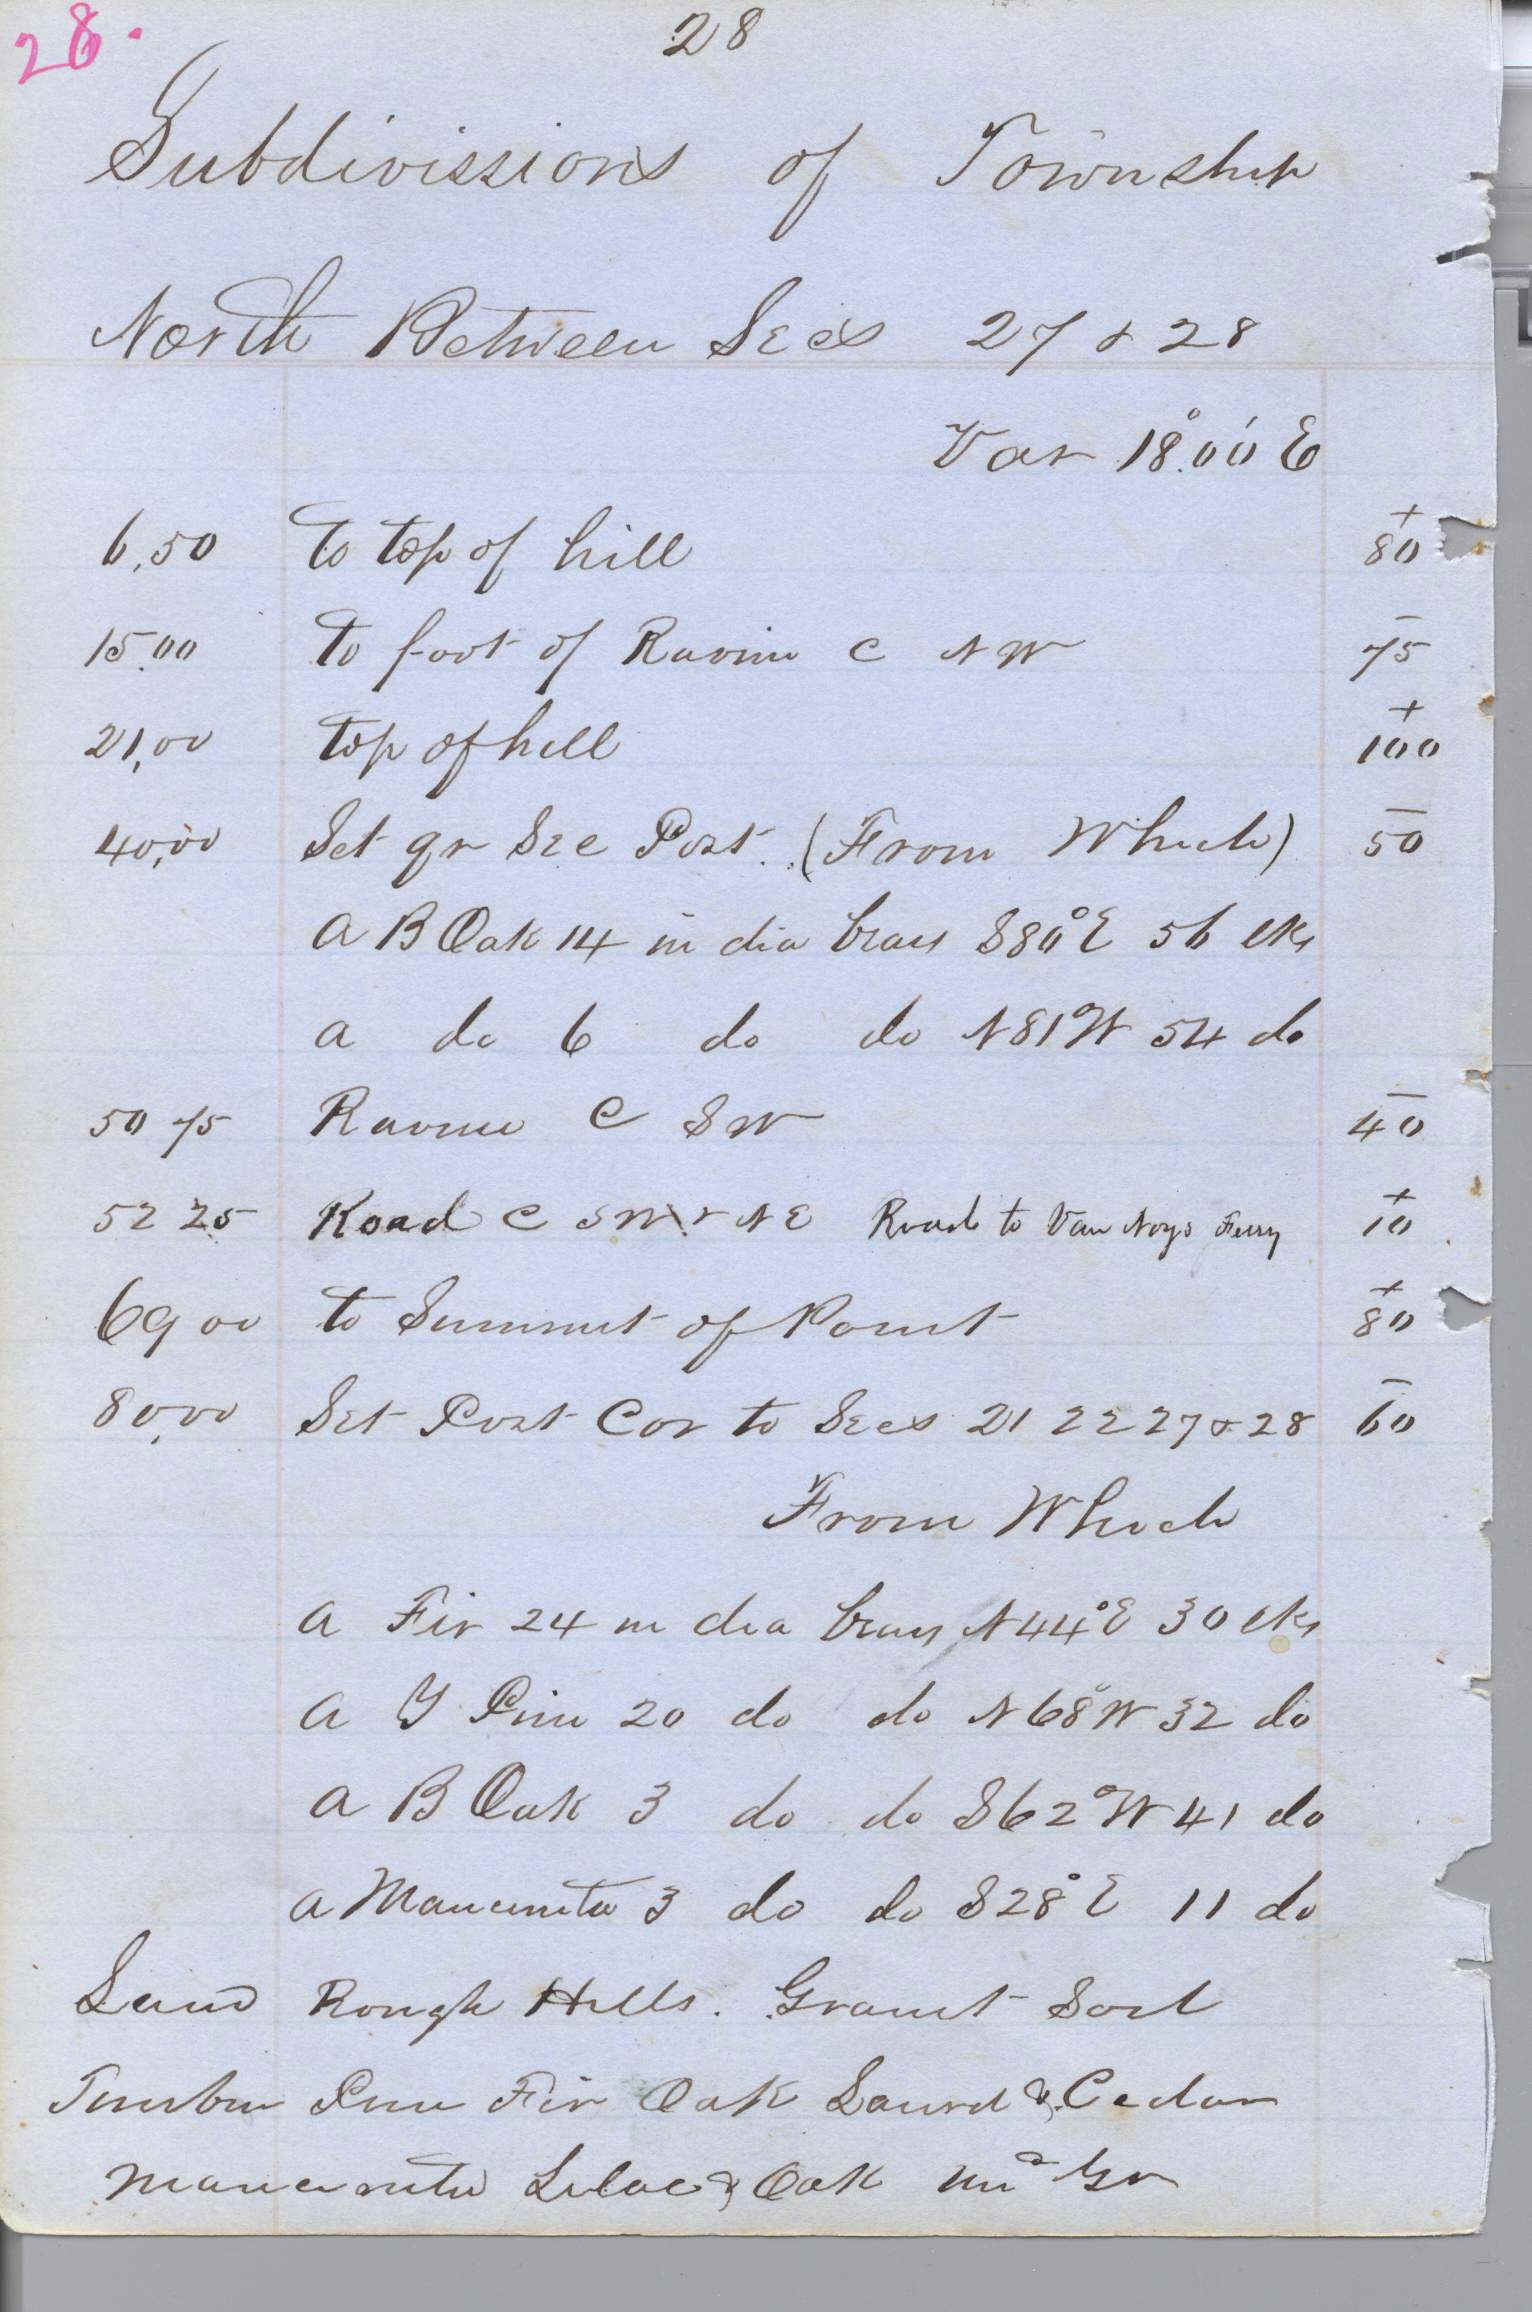 28.
28
Subdivissions of Township
North Between Secs 27 & 28
Var 18°.00' E
6,50 To top of hill +80
15.00 To foot of Ravine C N W -75
21,00 top of hill +100
40,00 Set qr Sec Post. (From Which) -50
A B Oak 14 in dia bears S80°E 56 lks
a do 6 do do N81°W 54 do
50 75 Ravine C S W -40
52 25 Road C S W & N E Road to Van Noys Ferry +10
69 00 to Summit of Point +80
80,00 Set Post Cor to Secs 21 22 27 & 28 -60
From Which
A Fir 24 in dia bears N44°E 30 lks
A Y Pine 20 do do N68°W 32 do
A B Oak 3 do do S62°W 41 do
a Mancinita 3 do do S28°E 11 do
Land Rough Hills. Granit Soil
Timber Pine Fir Oak Laurel & Cedar
Mancinita Lilac & Oak und Gr